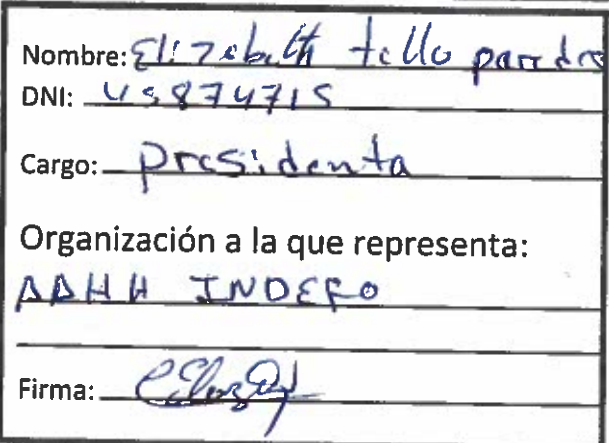 Nombre: Elizabeth tello paredes
DNI: 45874715
Cargo: presidenta
Organización a la que representa:
AAHH INDEFO
Firma: